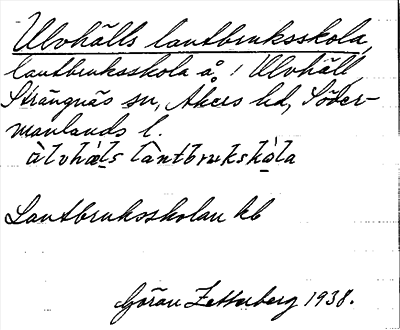 Ulvhälls lantbruksskola,
lantbruksskola å ! Ulvhäll,
Strängnäs sn, Åkers hd, Söder-
manlands l.
àlvhæls làntbrukskòla
Lantbruksskolan kb
Göran Zetterberg 1938.